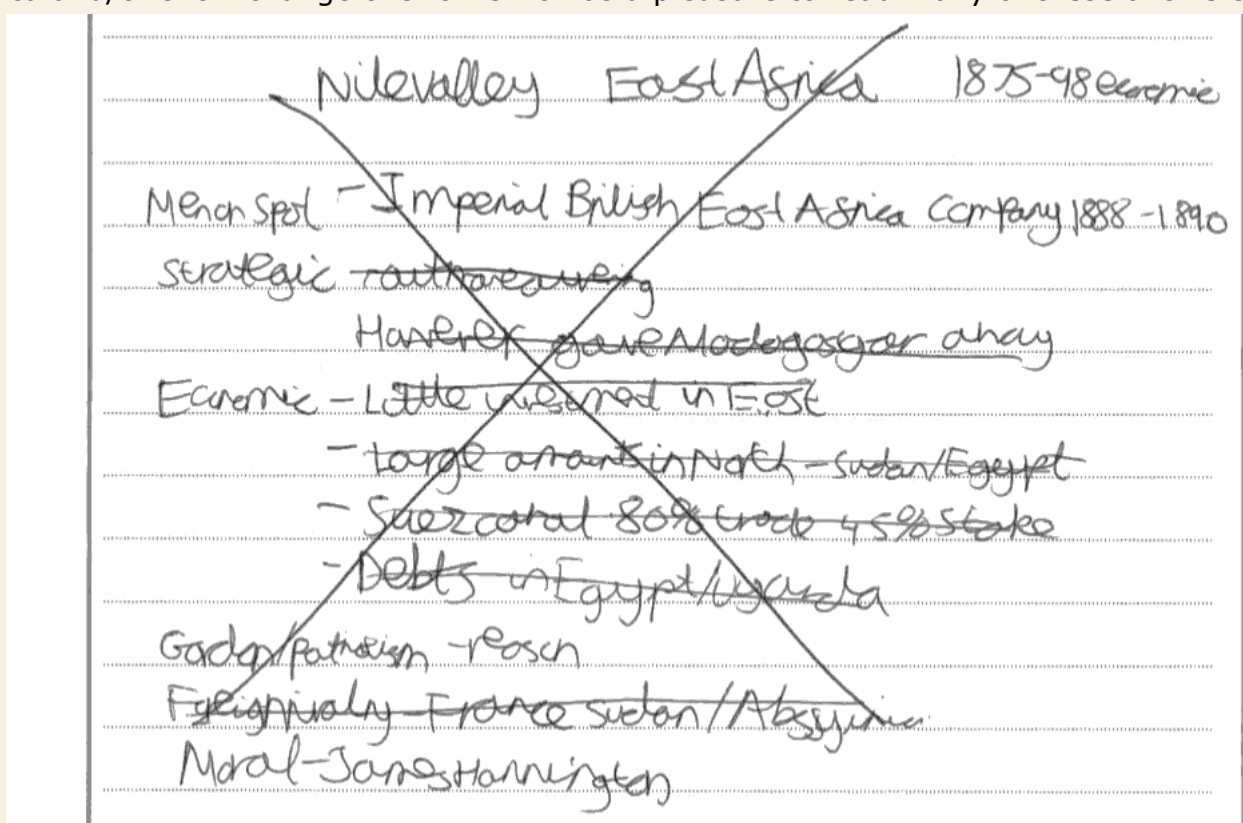 Nilevalley East Africa 1875-98 economic
Men on Spot - Imperial British East Africa Company 1888-1890
Strategic
However gave Madagasgar away
Economic - Little invesmed in East
- Large amounts in North - Sudan/Egeypt
- Suez canal 80% trade 45% Stake
- Debts in Egypt/Uganda
Gordon/patriotism - reason
Foreign rivalry - France Sudan/Abssyinia
Moral - James Hannington